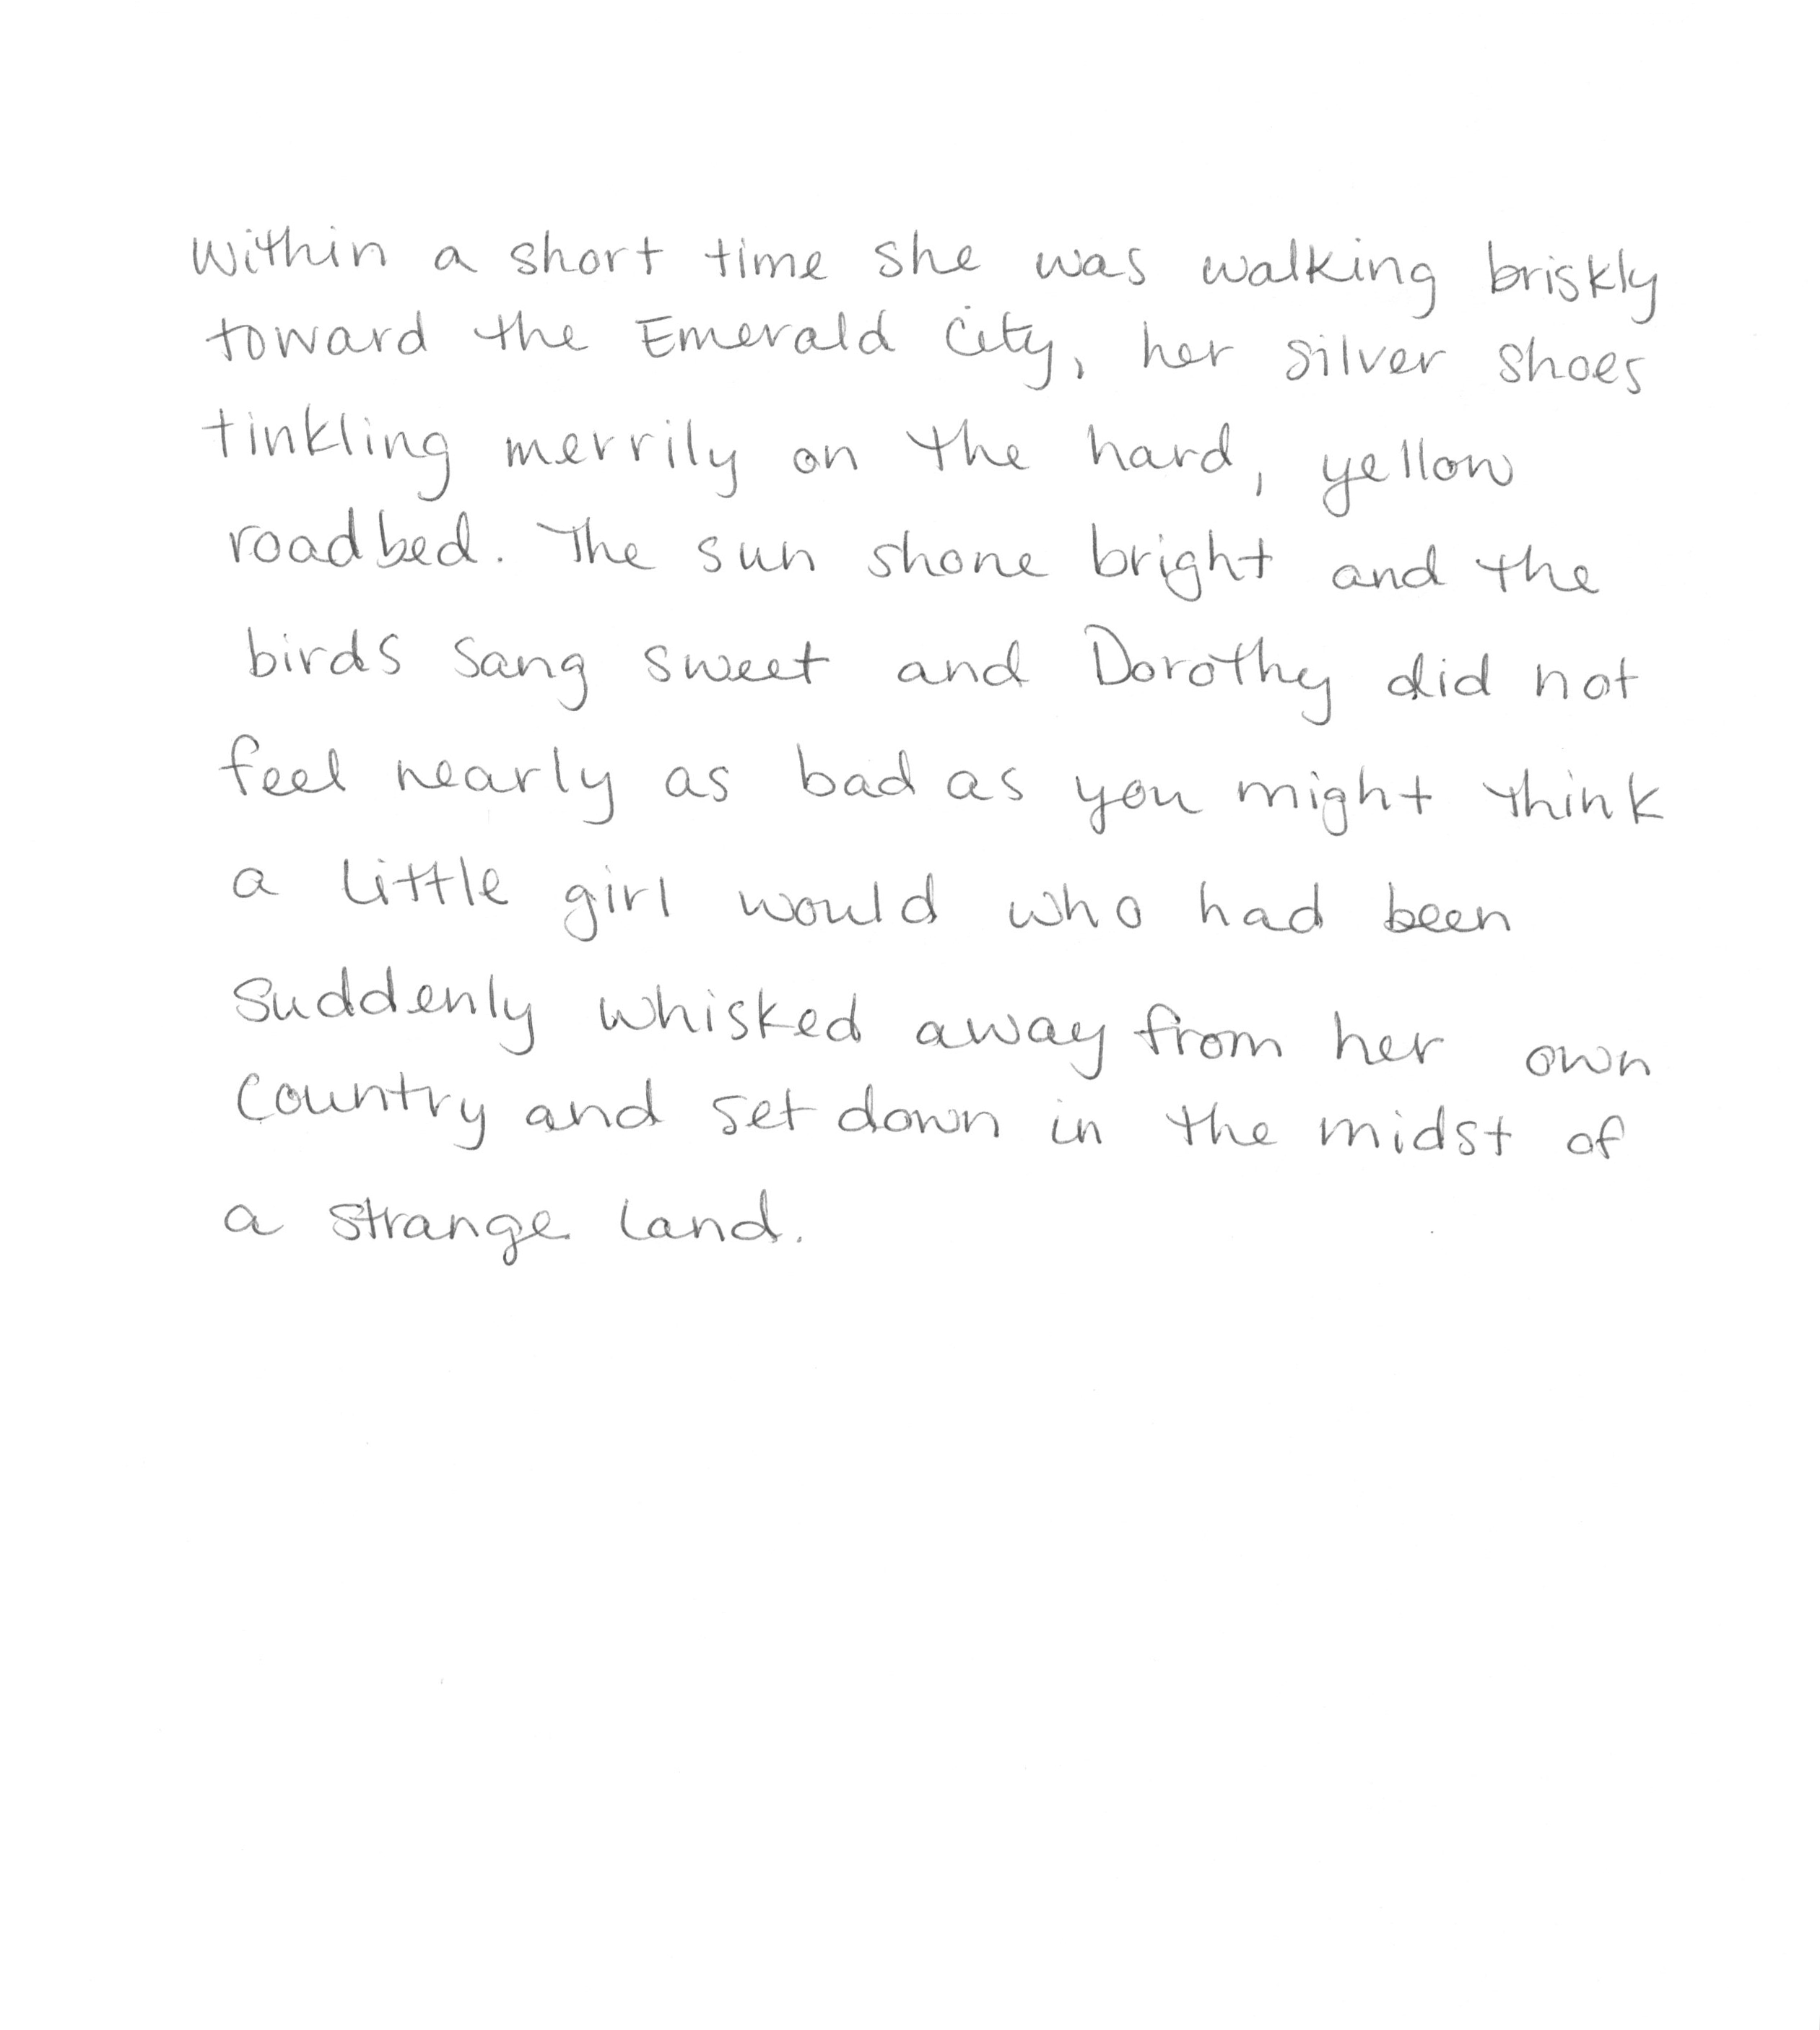 Within a short time she was walking briskly
toward the Emerald City, her silver shoes
tinkling merrily on the hard, yellow
roadbed. The sun shone bright and the
birds sang sweet and Dorothy did not
feel nearly as bad as you might think
a little girl would who had been
suddenly whisked away from her own
country and set down in the midst of
a strange land.